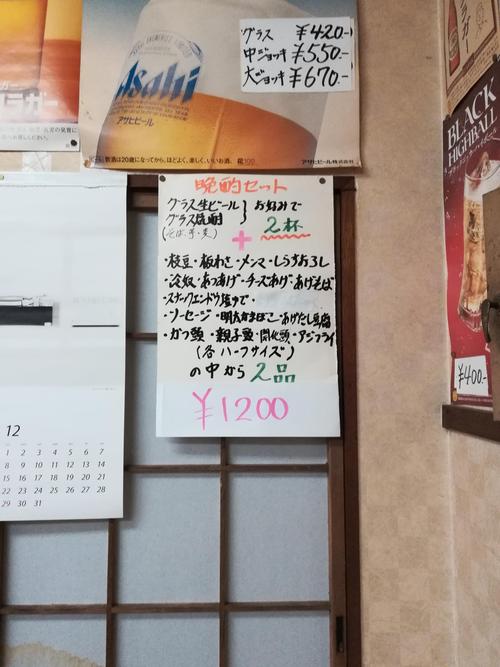 グラス ¥420-
中ジョッキ ¥550.-
大ジョッキ ¥670.-
Asahi
アサヒビール
飲酒は20歳になってから。ほどよく、楽しく、いいお酒。
アサヒビール株式会社
晩酌セット
グラス生ビール
グラス焼酎
(そば・芋・麦)
お好みで
2杯
+
・枝豆・板わさ・メンマ・しらすおろし
・冷奴・あつあげ・チーズあげ・あげそば
・スナックエンドウ塩ゆで・
・ソーセージ・明太かまぼこ・あげだし豆腐
・かつ頭・親子頭・開化頭・アジフライ
(各ハーフサイズ)
の中から 2品
¥1200
BLACK
HIGHBALL
¥400-
12
1 2 3 4 5 6 7
8 9 10 11 12 13 14
15 16 17 18 19 20 21
22 23 24 25 26 27 28
29 30 31